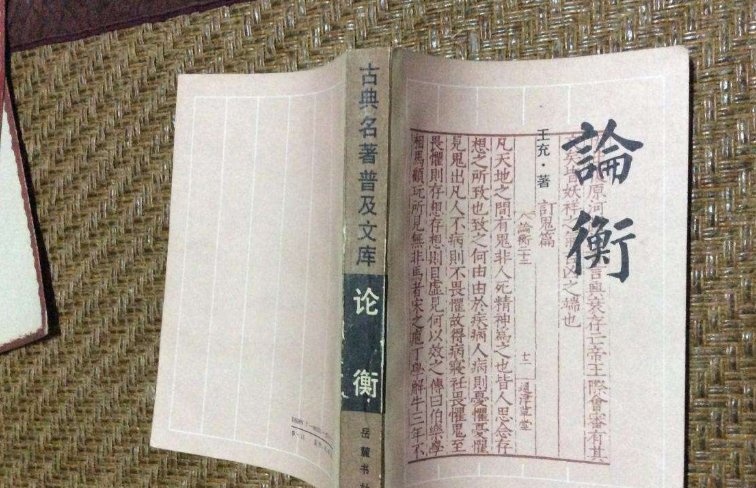 古典名著普及文库
论衡
岳麓书
論衡
王充·著
言興衰存亡帝王際會審有其
凶之端也
訂鬼篇
論衡二十二
十二
通津草堂
凡天地之間有鬼非人死精神為之也皆人思念存
想之所致也致之何由由於疾病人病則憂懼憂懼
見鬼出凡人不病則不畏懼故得病寢衽畏懼鬼至
畏懼則存想存想則目虛見何以效之傳曰伯樂學
相馬顧玩所見無非馬者宋之庖丁學解牛三年不